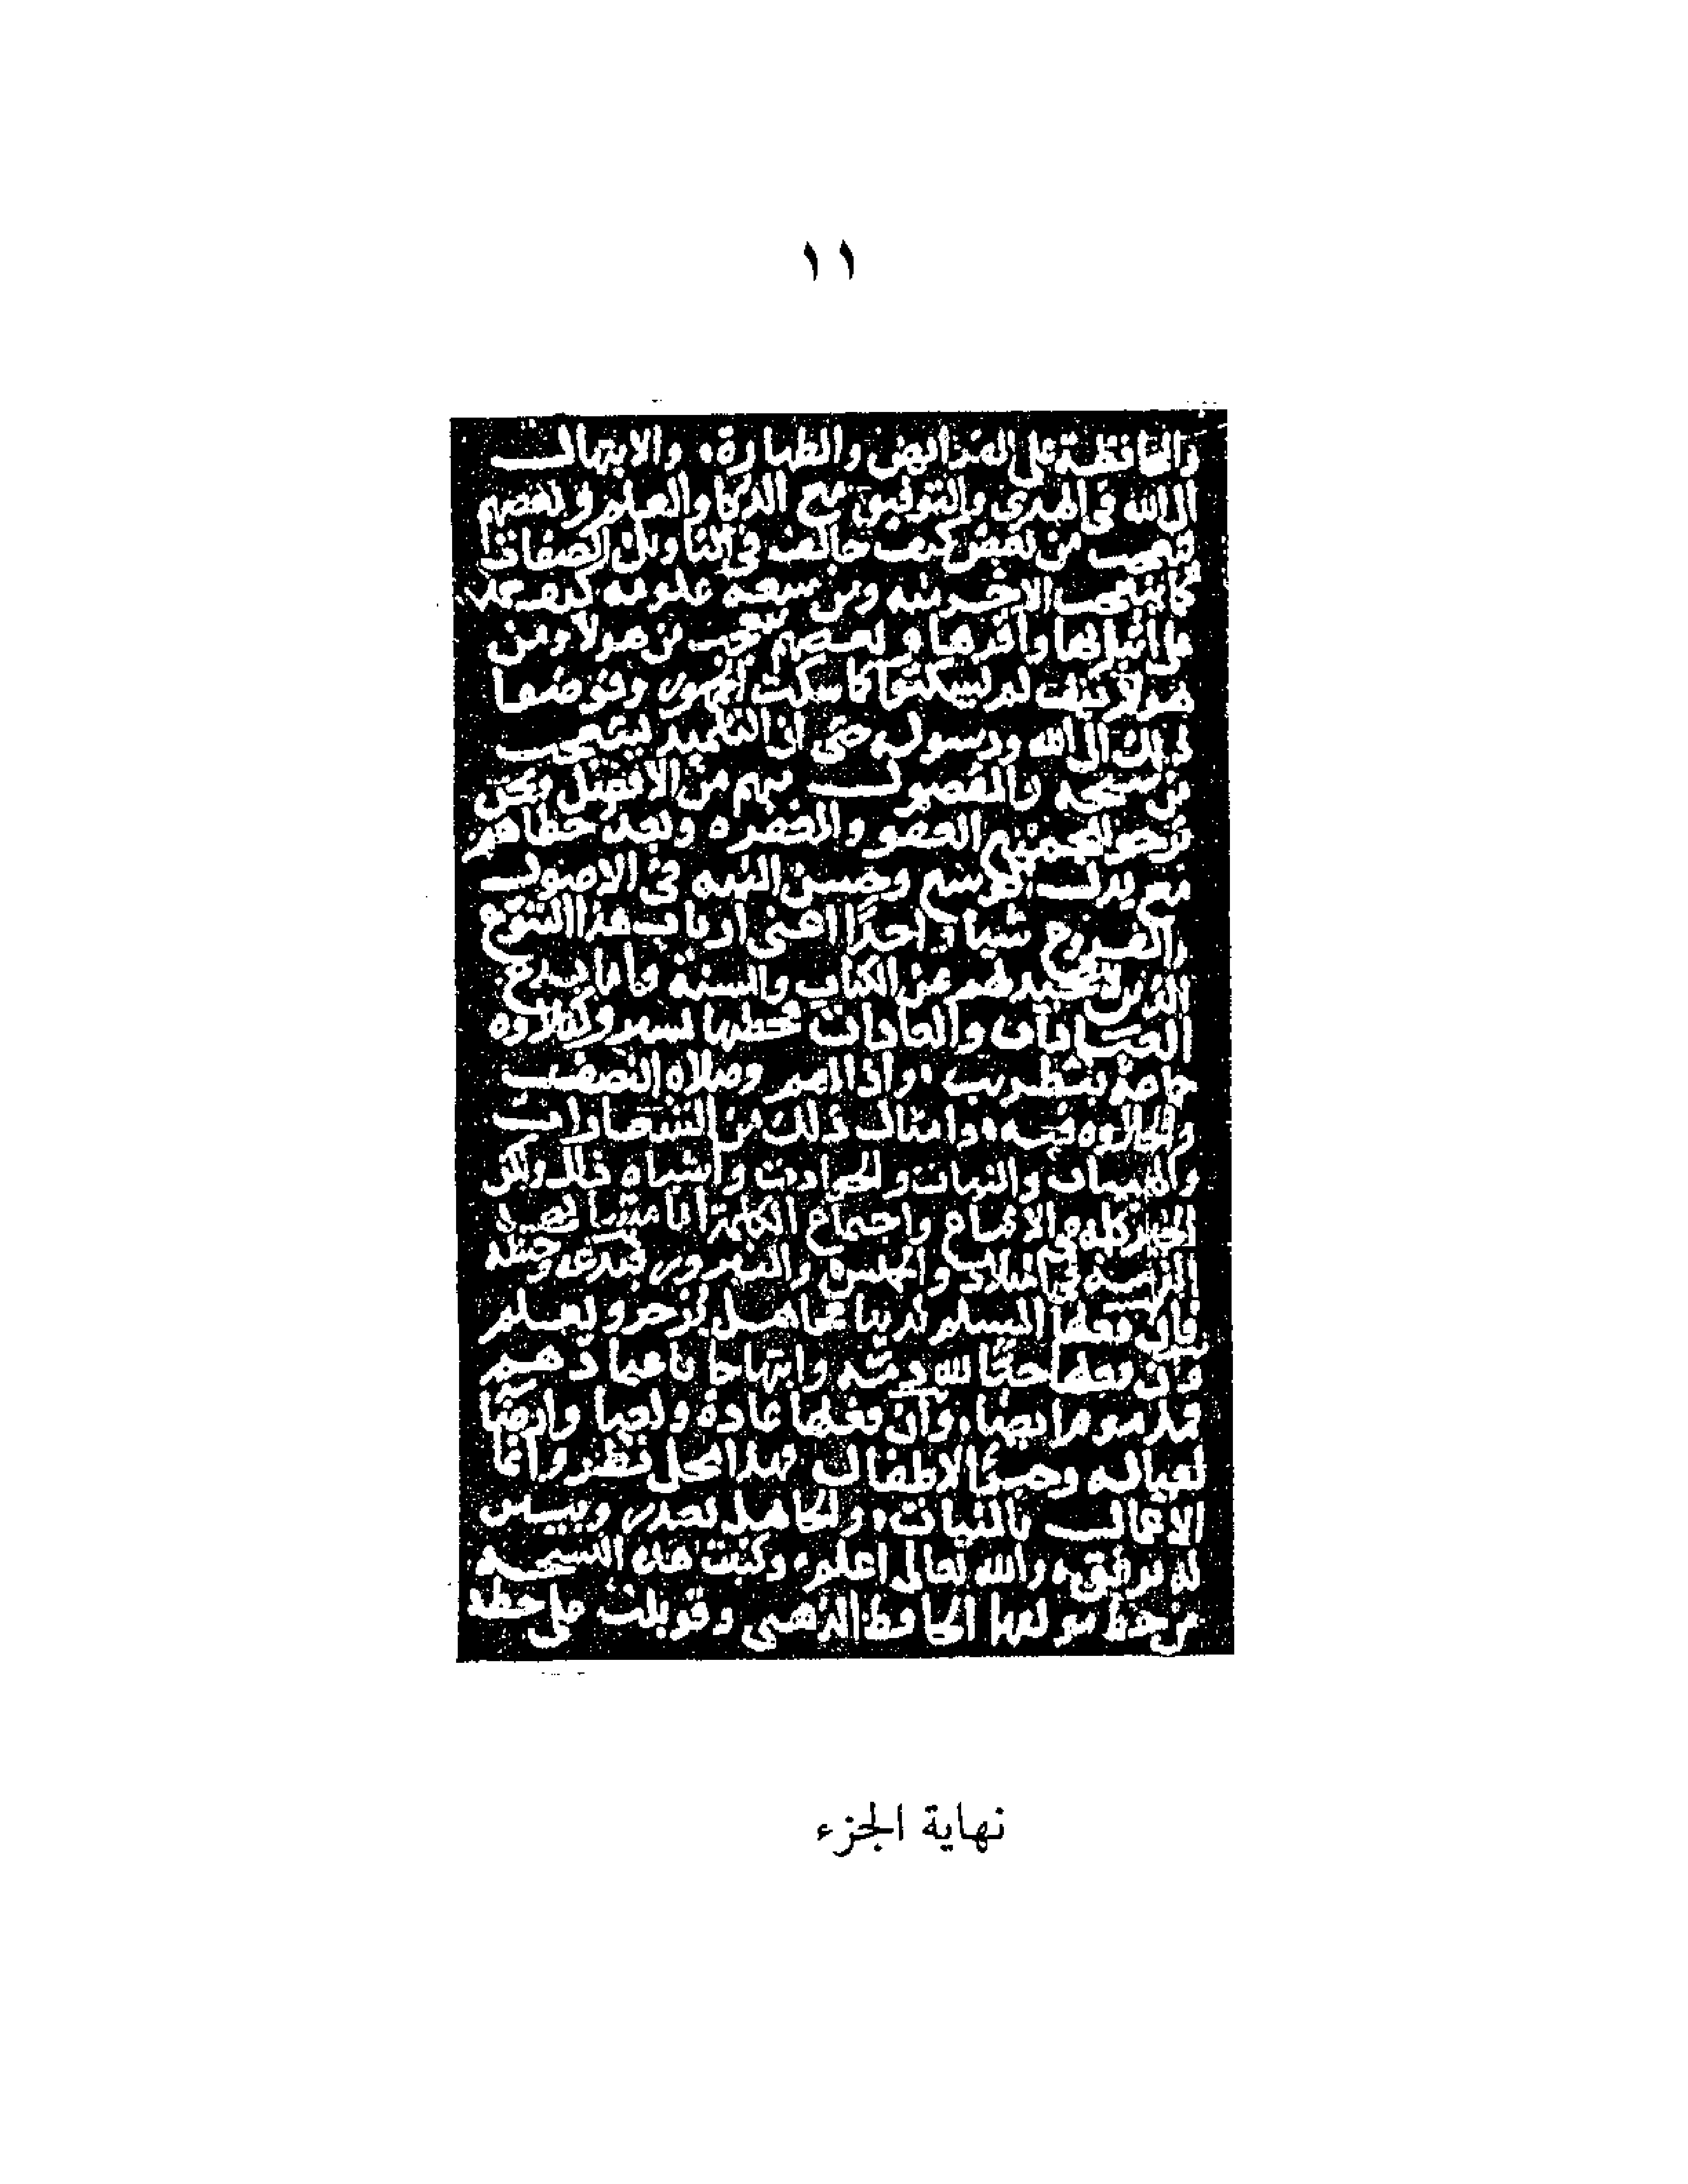 ١١
والمحافظة على الفرائض والطهارة، والابتهال
الى الله في الهدى والتوفيق مع الذكا والعلم وبعضهم
يتعجب من بعض كيف خالف في التاويل الصفات
كما يتعجب الاخر منه ومن سعه علومه كيف
على اثباتها واقرها وبعضهم يتعجب من هولا ومن
هولا كيف لم يسكتوا كما سكت الجمهور وفوضوا
ذلك الى الله ورسوله حتى ان التلميذ ليتعجب
من شيخه والمفضول منهم من الافضل ونحن
نرجو لجميعهم العفو والمغفره ونعد خطاهم
مع بذل الوسع وحسن النيه في الاصول
والفروع شيا واحدا اعني ارباب هذا التنوع
الذين لا محيد لهم عن الكتاب والسنة فاما بدع
العبادات والعادات فخطبها يسير وكتلاوه
جماعة بتطريب، واذان وصلاه النصف
والحلاوه فيه، وامثال ذلك من الشعارات
والهييات والنيات والحوادث واشباه ذلك ولكن
الخير كله في الاتباع واجتماع الكلمة اما مشابهة
الذمة في الميلاد والخميس والنيروز فبدعة وحشة
فان فعلها المسلم تدينا فجاهل يزجر ويعلم
وان فعلها حبا لله وابتهاجا باعيادهم
فمذموم ايضا، وان فعلها عادة ولعبا وارضا
لعياله وجبرا لاطفاله فهذا محل نظر وانما
الاعمال بالنيات، والجاهل يعذر ويبين
له برفق، والله تعالى اعلم، وكتبت هذه النسخه
من خط مولفها الحافظ الذهبي وقوبلت على خطه
نهاية الجزء